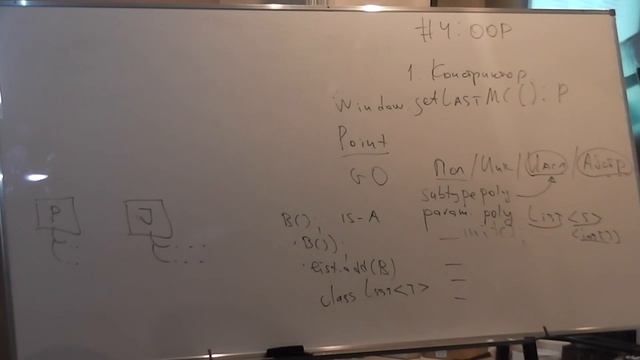 #4: OOP
1. Конструктор
Window.getLASTMC(): P
Point
GO
Пол / Инк / Насл / Абстр
subtype poly
param. poly List<S>
<int>
init();
P
J
B(); IS-A
.B());
.list.add(B)
class List<T>